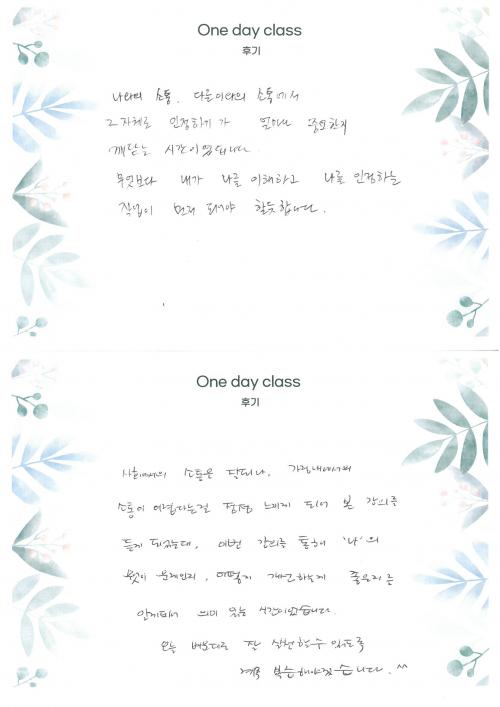 One day class
후기
나와의 소통, 다른이와의 소통에서
그 자체로 인정하기가 얼마나 중요한지
깨닫는 시간이었습니다.
무엇보다 내가 나를 이해하고 나를 인정하는
작업이 먼저 되어야 할듯합니다.
One day class
후기
사회에서의 소통은 되나, 가정내에서의
소통이 어렵다는걸 점점 느끼게 되어 본 강의를
듣게 되었는데, 이번 강의를 통해 '나'의
무엇이 문제인지, 어떻게 개선하는게 좋을지를
알게되어 의미 있는 시간이었습니다.
오늘 배운대로 잘 실천할 수 있도록
계속 복습해야겠습니다. ^^